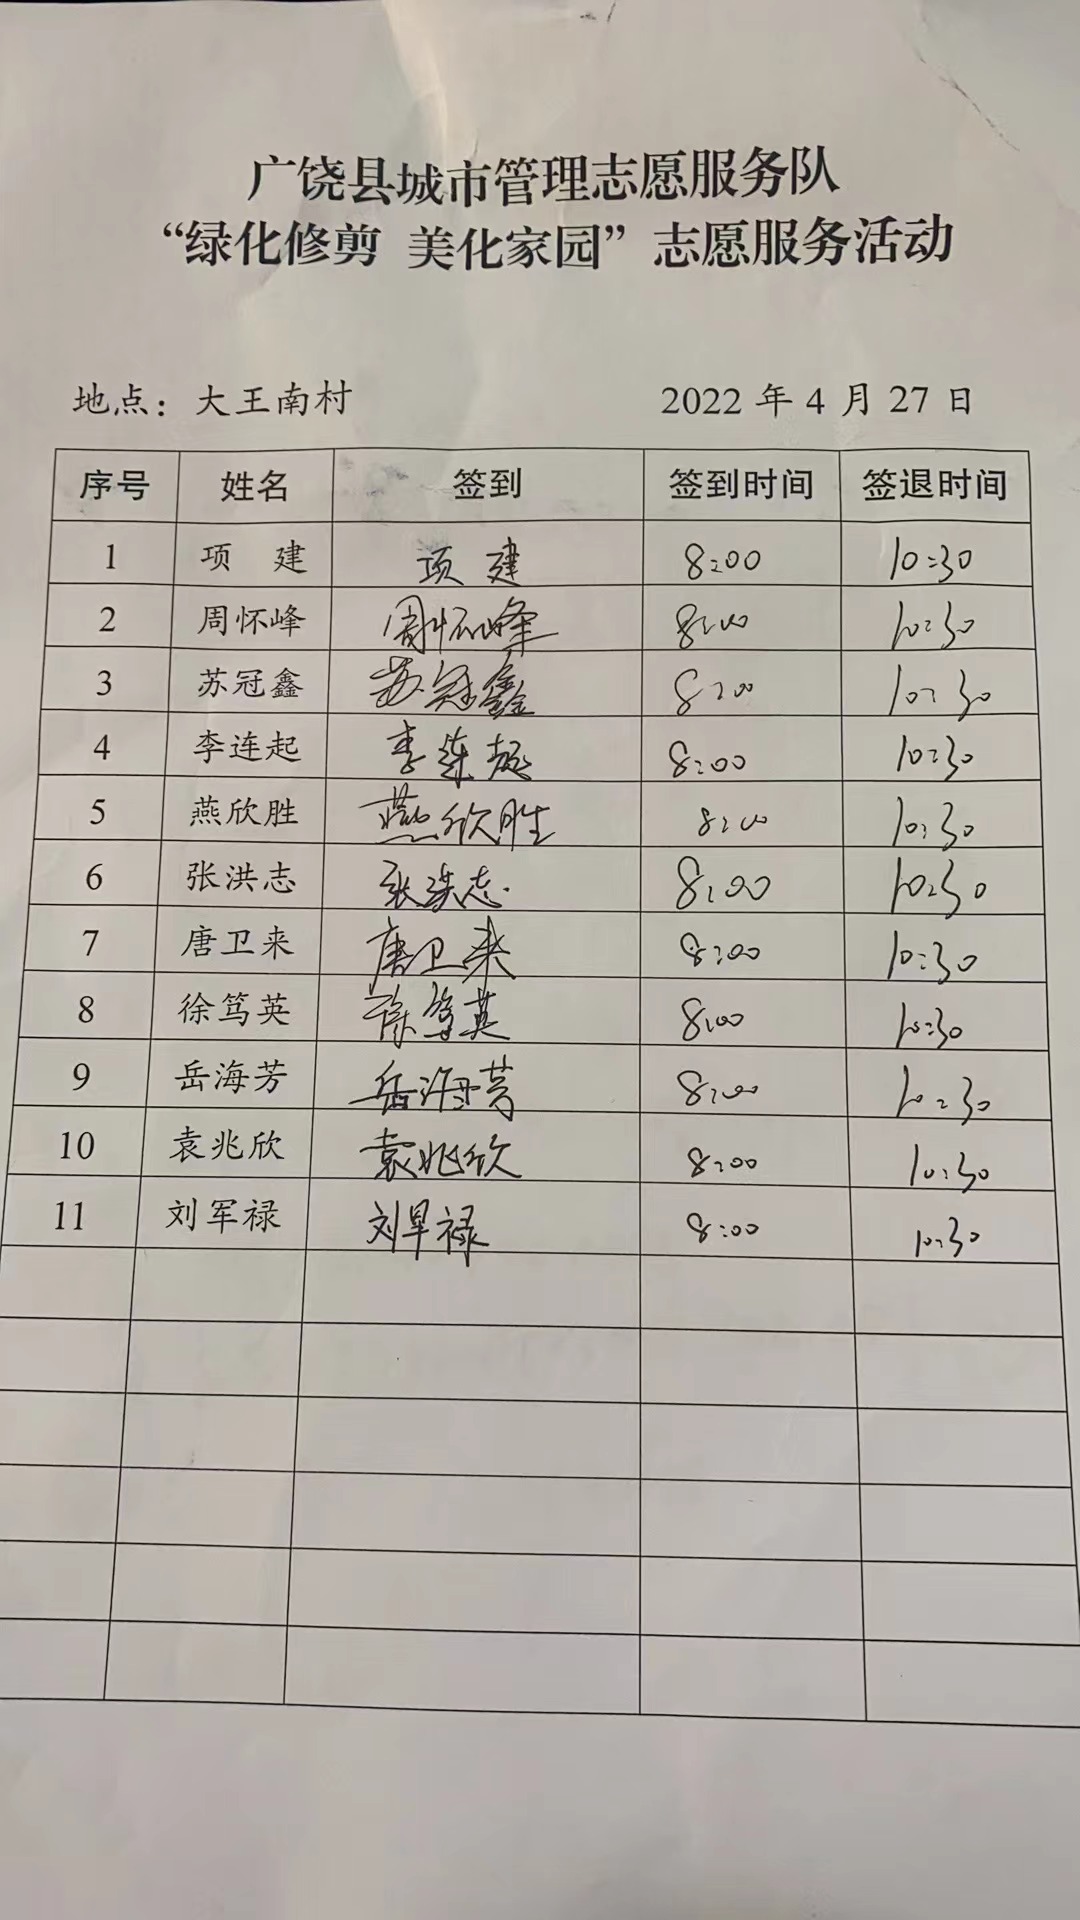 广饶县城市管理志愿服务队
“绿化修剪 美化家园”志愿服务活动
地点：大王南村 2022 年 4 月 27 日
序号 姓名 签到 签到时间 签退时间
1 项 建 项 建 8:00 10:30
2 周怀峰 周怀峰 8:00 10:30
3 苏冠鑫 苏冠鑫 8:00 10:30
4 李连起 李连起 8:00 10:30
5 燕欣胜 燕欣胜 8:00 10:30
6 张洪志 张洪志 8:00 10:30
7 唐卫来 唐卫来 8:00 10:30
8 徐笃英 徐笃英 8:00 10:30
9 岳海芳 岳海芳 8:00 10:30
10 袁兆欣 袁兆欣 8:00 10:30
11 刘军禄 刘军禄 8:00 10:30